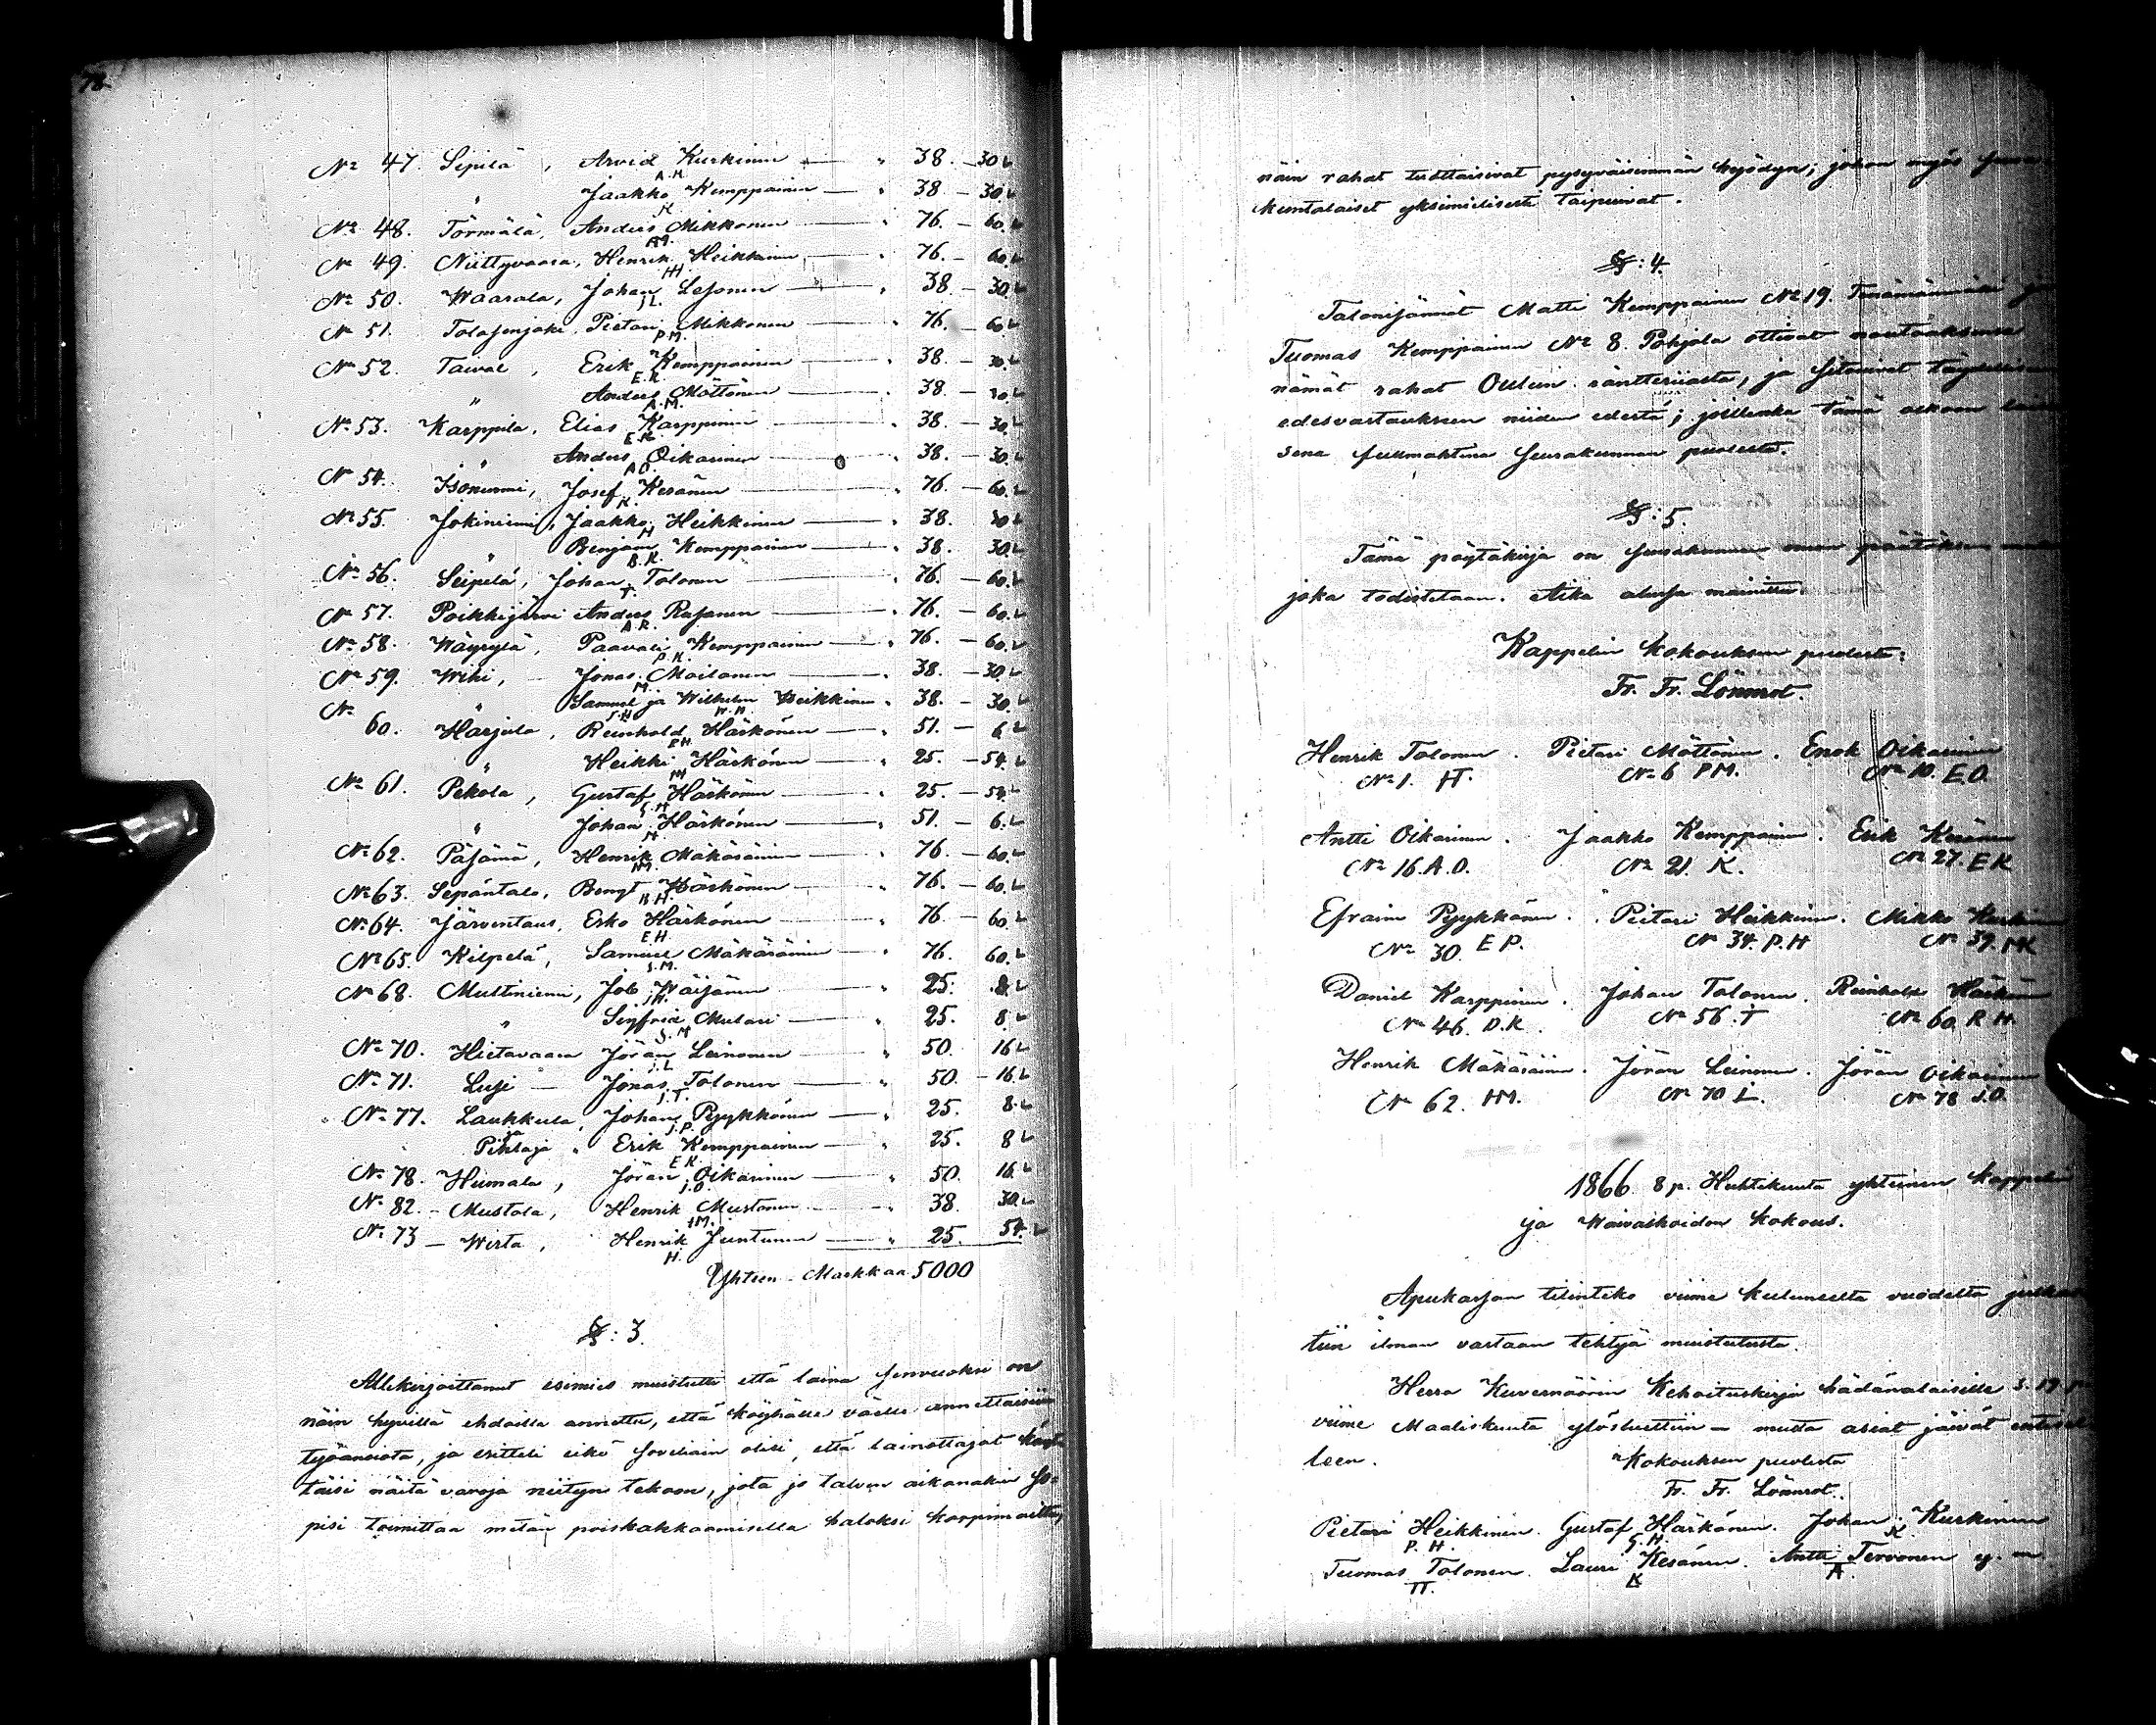 78.
No 47. Sipilä, Arvid Kurkinen — " 38. — 30
A.K.
" Jaakko Kemppainen — " 38 — 30
K
No 48. Törmälä, Anders Mikkonen — " 76. — 60.
AM.
No 49. Niittyvaara, Henrik Heikkinen — " 76. — 60.
HH
No 50. Waarala, Johan Lesonen — " 38 — 30
J L.
No 51. Tolosenjoki, Pietari Mikkonen — " 76. — 60
P.M.
No 52. Taival, Erik Kemppainen — " 38 — 30.
E.K.
" Anders Möttönen — " 38. — 30.
A.M.
No 53. Karppila, Elias Karppinen — " 38. — 30.
E.K.
" Anders Oikarinen — 38. — 30.
A O.
No 54. Isonurmi, Josef Kesänen — " 76. — 60.
K.
No 55. Jokiniemi, Jaakko Heikkinen — " 38. 30
H
" Benjam Kemppainen — " 38. 30.
B.K.
No 56. Seipelä, Johan Tolonen — " 76. — 60.
T.
No 57. Poikkijärvi Anders Rasanen — " 76. — 60.
A.R.
No 58. Wäyrylä, Paavali Kemppainen — " 76. — 60.
P.K.
No 59. Wihi, — Jonas Moilanen — " 38. — 30.
M.
" Samuel ja Wilhelm Heikkinen " 38. — 30.
S.H W.H.
No 60. Harjula, Reinhold Härkönen — " 51. — 6
RH.
" Heikki Härkönen — " 25. — 54.
H
No 61. Pekola, Gustaf Härkönen — " 25. — 54.
G.H
" Johan Härkönen — " 51. — 6.
H.
No 62. Päsämä, Henrik Mäkäräinen — " 76. — 60.
HM.
No 63. Sepäntalo, Bengt Härkönen — " 76. — 60.
B.H.
No 64. Järventaus, Erko Härkönen — " 76 — 60.
E.H.
No 65. Kilpelä, Samuel Mäkäräinen — " 76. 60.
S.M.
No 68. Mustiniemi, Job Wäijänen — " 25. 8.
" Sigfrid Mulari — " 25. 8
S.M
No 70. Hietavaara Jöran Leinonen — " 50. 16
J.L
No 71. Lusi — Jonas Tolonen — " 50. — 16.
J.T.
No 77. Laukkula, Johan Pyykkönen — " 25. 8.
ja J.P.
Pihlaja " Erik Kemppainen — " 25. 8
E K.
No 78. Humala, Jöran Oikarinen — " 50. 16
J.O.
No 82. — Mustola, Henrik Mustonen — " 38. 30
HM.
No 73 — Wirta, Henrik Juntunen — " 25. 54.
H.
Yhteen — Markkaa 5000
§: 3.
Allekirjoittanut esimies muistutti että laina senvuoksi on
näin hyvillä ehdoilla annettu, että köyhälle väelle annettaisiin
työansiota, ja esitteli eikö soveliain olisi, että lainottajat käyt
täisi näitä varoja niityn tekoon, jota jo talven aikanakin so=
pisi toimittaa metän poiskakkaamisella haloksi korpimailta,
näin rahat tuottaisivat pysyväisemmän hyödyn; johon myös seura
kuntalaiset yksimielisesti taipuivat.
§: 4.
Talonisännät Matti Kemppainen No 19. ja
Tuomas Kemppainen No 8. Pohjola ottivat noutaaksensa
nämät rahat Oulun räntteriiasta, ja sitoivat
edesvastaukseen niiden edestä; joillenka tämä olkoon
sena fullmahtina Seurakunnan puolesta.
§: 5.
Tämä pöytäkirja on seurakunnan päätöksen
joka todistetaan. Aika alussa mainittu.
Kappelin kokouksen puolesta:
Fr. Fr. Lönnrot.
Henrik Tolonen. Pietari Möttönen. Enok Oikarinen
No 1. H. No 6 PM. No 10. E.O.
Antti Oikarinen. Jaakko Kemppainen. Erik Kesänen
No 16. A.O. No 21. K. No 27. E K
Efraim Pyykkönen. Pietari Heikkinen. Mikko Kurkinen
No 30. E P. No 34. P.H No 39. MK
Daniel Karppinen. Johan Tolonen. Reinhold Härkönen
No 46. D.K. No 56. T No 60. R H.
Henrik Mäkäräinen. Jöran Leinonen. Jöran Oikarinen
No 62. HM. No 70 L. No 78 J.O.
1866 8 p. Huhtikuuta yhteinen kappelin
ja Waivaishoidon kokous.
Apukassan tilinteko viime kuluneelta vuodelta julkais
tiin ilman vastaan tehtyä muistutusta.
Herra Kuvernöörin Kehoituskirja hädänalaisille 3. 17 p
viime Maaliskuuta ylösluettiin — mutta asiat jäivät
leen. Kokouksen puolesta
Fr. Fr. Lönnrot.
Pietari Heikkinen. Gustaf Härkönen. Johan Kurkinen
P. H. G.H. K
Tuomas Tolonen. Lauri Kesänen. Antti Tervonen y. m.
TT. K A.